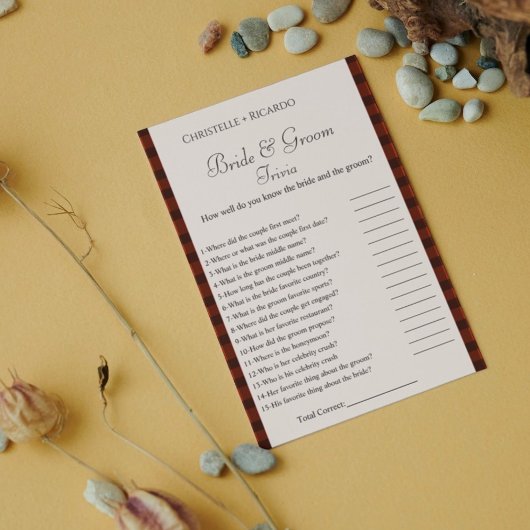 CHRISTELLE + RICARDO
Bride & Groom
Trivia
How well do you know the bride and the groom?
1-Where did the couple first meet?
2-Where or what was the couple first date?
3-What is the bride middle name?
4-What is the groom middle name?
5-How long has the couple been together?
6-What is the bride favorite country?
7-What is the groom favorite sports?
8-Where did the couple get engaged?
9-What is her favorite restaurant?
10-How did the groom propose?
11-Where is the honeymoon?
12-Who is her celebrity crush?
13-Who is his celebrity crush
14-Her favorite thing about the groom?
15-His favorite thing about the bride?
Total Correct: